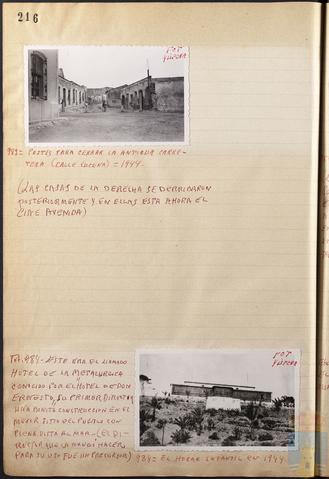 216
FOT
983= POSTES PARA CERRAR LA ANTIGUA CARRE-
TERA (CALLE LUCENA) = 1944.
(LAS CASAS DE LA DERECHA SE DERRIBARON
POSTERIORMENTE Y EN ELLAS ESTA AHORA EL
CINE AVENIDA)
Fot. 984.- ESTE ERA EL LLAMADO
HOTEL DE LA METALURGICA
CONOCIDO POR EL HOTEL DE DON
ERNESTO, SU PRIMER DIRECTOR
UNA BONITA CONSTRUCCION EN EL
MEJOR SITIO DEL PUEBLO CON
PLENA VISTA AL MAR.- (EL DI-
RECTOR QUE LA MANDÓ HACER
PARA SU USO FUE UN PRECURSOR)
FOT
984= EL HOGAR INFANTIL EN 1944